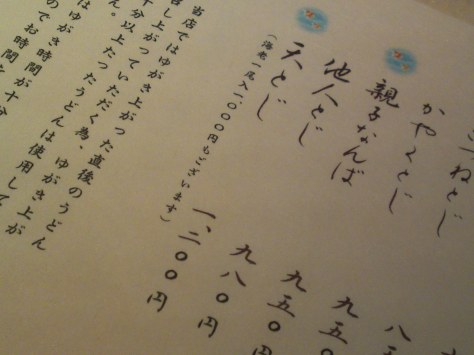 つねとじ 八五
かやくとじ 九五
親子なんば 九五〇
他人とじ 九八〇円
天とじ 一、二〇〇円
(海老一尾入一、〇〇〇円もございます)
当店ではゆがき上がった直後のうどん
召し上がっていただく為、ゆがき上が
十分以上たったうどんは使用して
ん。
はゆがき時間が十分
のでお時間を